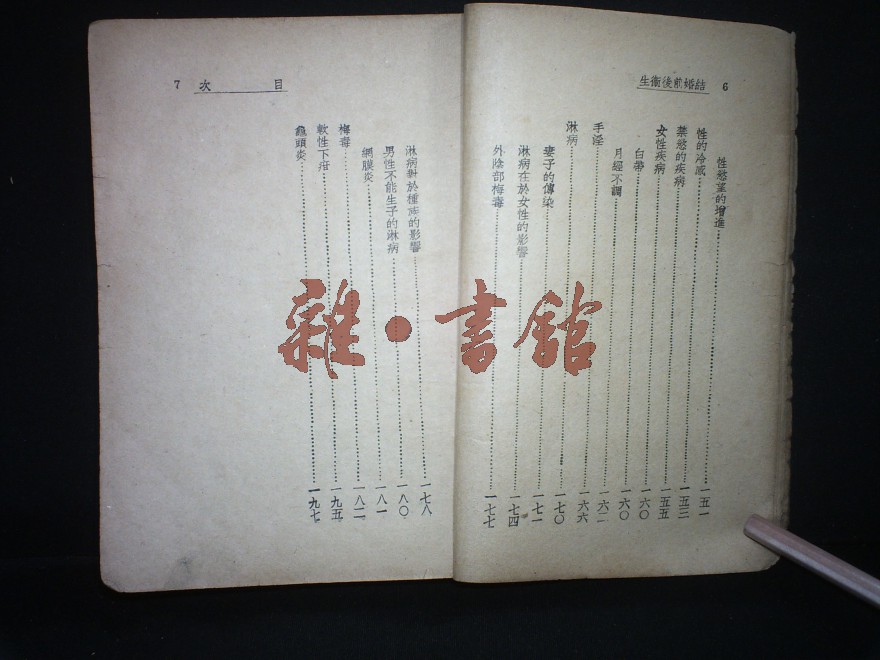 6 結婚前後衞生
性慾望的增進……一五一
性的冷感……一五三
禁慾的疾病……一五五
女性疾病……一六〇
白帶……一六〇
月經不調……一六二
手淫……一六六
淋病……一七〇
妻子的傳染……一七一
淋病在於女性的影響……一七四
外陰部梅毒……一七七
目次 7
淋病對於種族的影響……一七八
男性不能生子的淋病……一八〇
網膜炎……一八一
梅毒……一八二
軟性下疳……一九五
龜頭炎……一九七
雜·書館